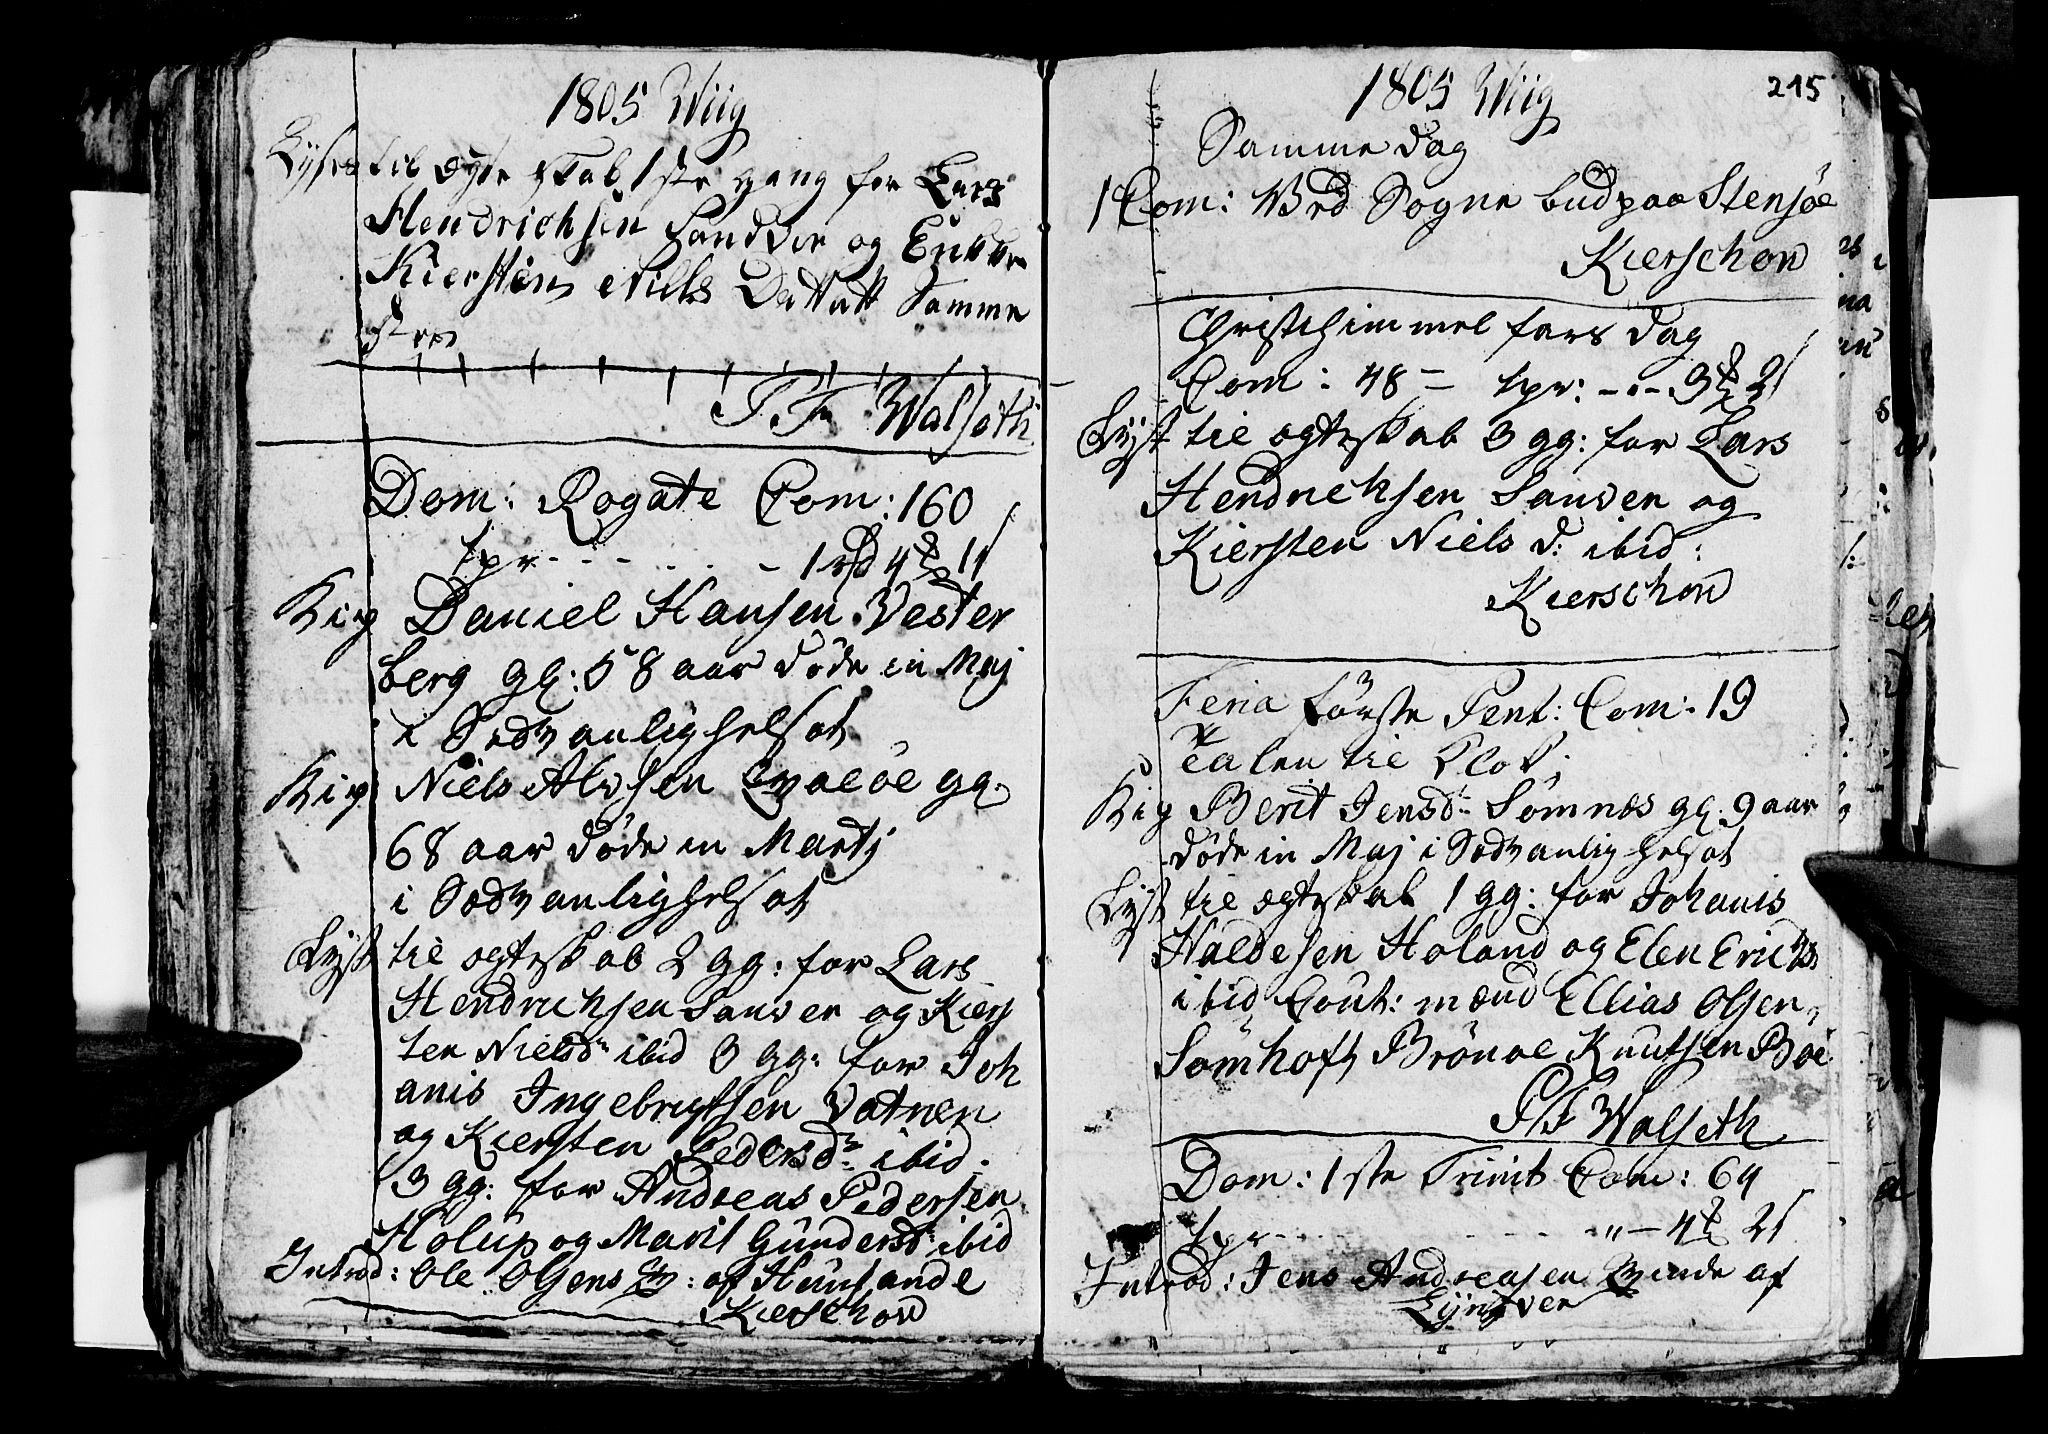 1805 Wiig
Lyses til ægte skab 1ste gang for Lars
Hendrichsen Sandver og Enken
Kiersten Niels Datter Samme
stæd
P. F. Walseth
Dom: Rogate Com: 160
tpr - - - - - 1 rd 4 11
Kip Daniel Hansen Vester
berg gl: 58 aar døde in Maj
i Sedvanlighelsot
Kip Niels Alvsen Qvaløe gl.
68 aar døde in Martj
i Sedvanlighelsot
Lyst til ægteskab 2 gg: for Lars
Hendrichsen Sanver og Kiers
ten Nielsdr ibid 3 gg: for Joh
anis Ingebrigtsen Vatnen
og Kiersten Pedersdr ibid.
3 gg: for Andreas Pedersen
Holup og Marit Gundersd: ibid
Introd: Ole Olsens Qv: af Hunsande
Kierschow
1805 Wiig 215
Samme Dag
1 Com: Ved Sogne bud paa Stensøe
Kierschow
Christi himmel fars Dag
Com: 48 = tpr: - - - 3 2
Lyst til egteskab 3 gg: for Lars
Hendrichsen Sanver og
Kiersten Niels d: ibid:
Kierschow
Feria första Pent: Com: 19
Talen til
Kip Berit Jensd: Sömnæs gl: 9 aar
døde in Maj i Sedvanlig helsot
Lyst til ægteskab 1 gg: for Johanis
Haldesen Holand og Elen Erichs
ibid Cout: mænd Ellias Olsen
Sömhoft Brönoe Knutsen Bøe
P F Walseth
Dom: 1ste Trinit Com: 64
tpr - - - - - " - 4 2
Introd: Jens Andreasen Qvinde af
Lyngver